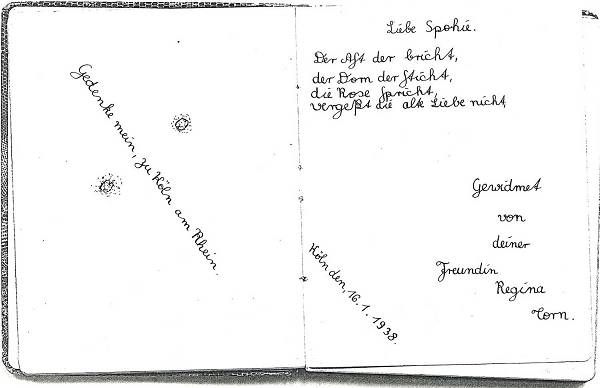 Gedenke mein, zu Köln am Rhein.
Liebe Spohie.
Der Aſt der bricht,
der Dorn der ſticht,
die Rose ſpricht,
vergeßt die alte Liebe nicht
Gewidmet
von
deiner
Freundin
Regina
Torn.
Köln den, 16.1.1938.